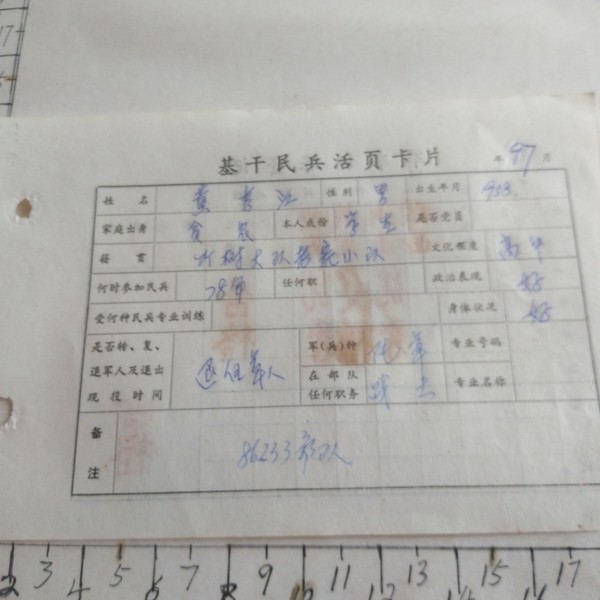 基干民兵活页卡片
年 月
姓名 黄 江 性别 男 出生年月 953.
家庭出身 贫农 本人成份 学生 是否党员
籍贯 大队 小队 文化程度 高中
何时参加民兵 78年 任何职 政治表现 好
受何种民兵专业训练 身体状况 好
是否转、复、退军人及退出现役时间 退伍军人 军(兵)种 陆军 专业号码
在部队任何职务 战士 专业名称
备注 86253部队
2 3 4 5 6 7 8 9 10 11 12 13 14 15 16 17